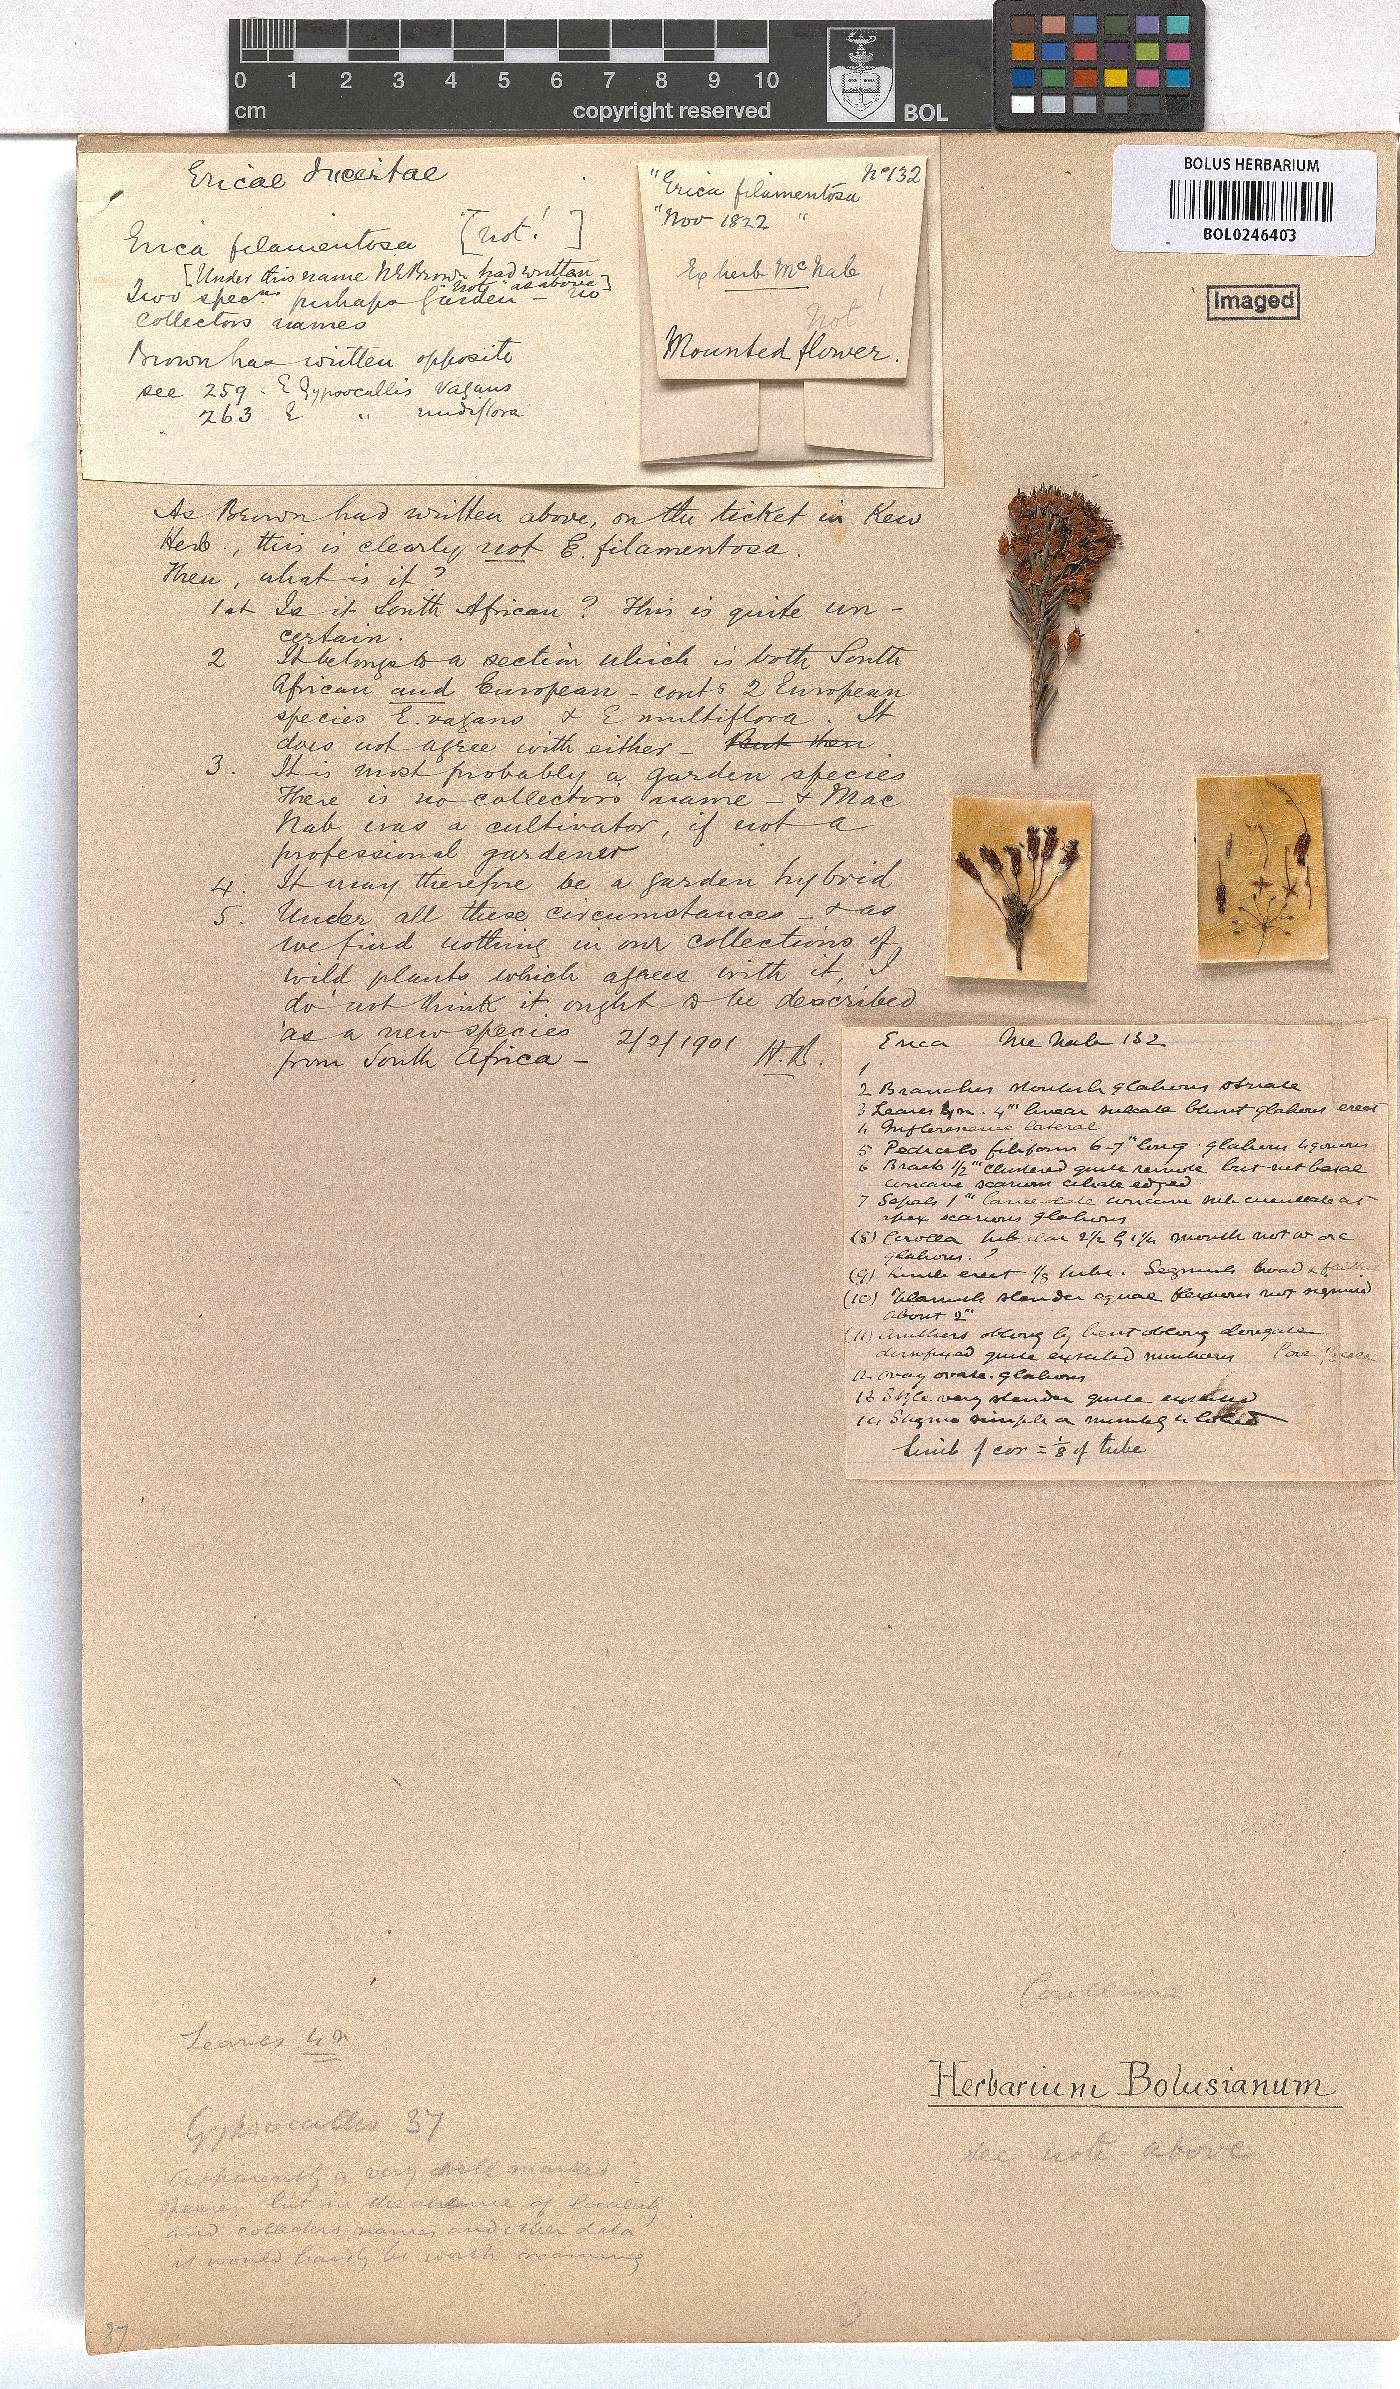 0 1 2 3 4 5 6 7 8 9 10
cm copyright reserved BOL
BOLUS HERBARIUM
BOL0246403
Imaged
Ericae Incertae
Erica filamentosa [not!]
[Under this name N.E.Brown had written
"Not" as above]
Two specns perhaps Garden - no
collectors names
Brown has written opposite
see 259 - E Gypsocallis vagans
263 E " nudiflora
No 132
"Erica filamentosa
"Nov 1822 "
Ex herb McNab
Not!
Mounted flower.
As Brown had written above, on the ticket in Kew
Herb., this is clearly not E. filamentosa.
Then, what is it?
1st Is it South African? This is quite un-
certain.
2 It belongs to a section which is both South
African and European - conts 2 European
species E. vagans & E multiflora. It
does not agree with either - But then
3. It is most probably a garden species
There is no collector's name - & Mac
Nab was a cultivator, if not a
professional gardener
4. It may therefore be a garden hybrid
5. Under all these circumstances - & as
we find nothing in our collections of
wild plants which agrees with it, I
do not think it ought to be described
as a new species
from South Africa - 2/2/1901 H.B.
Erica Mc Nab 132
1
2 Branches stoutish glabrous striate
3 Leaves 4n. 4''' linear sulcate blunt glabrous erect
4 Inflorescence lateral
5 Pedicels filiform 6-7''' long glabrous
6 Bracts 1/2''' clustered quite remote but not basal
concave scarious ciliate edged
7 Sepals 1''' concave sub cucullate at
apex scarious glabrous
(8) Corolla 2 1/2 by 1 1/4 mouth not
glabrous. ?
(9) Limb erect 1/8 tube. Segments broad &
(10) Filaments slender equal flexuous not
about 2'''
(11) Anthers oblong by bent oblong elongate
dorsifixed quite exserted muticous Pore
12 Ovary ovate. glabrous
13 Style very slender quite exserted
14 Stigma simple or minutely lobed
Limb of cor = 1/8 of tube
Leaves 4n
Herbarium Bolusianum
Gypsocallis 37
see note above
Apparently a very well marked
species but in the absence of locality
and collectors names and other data
it would hardly be worth naming
3
37